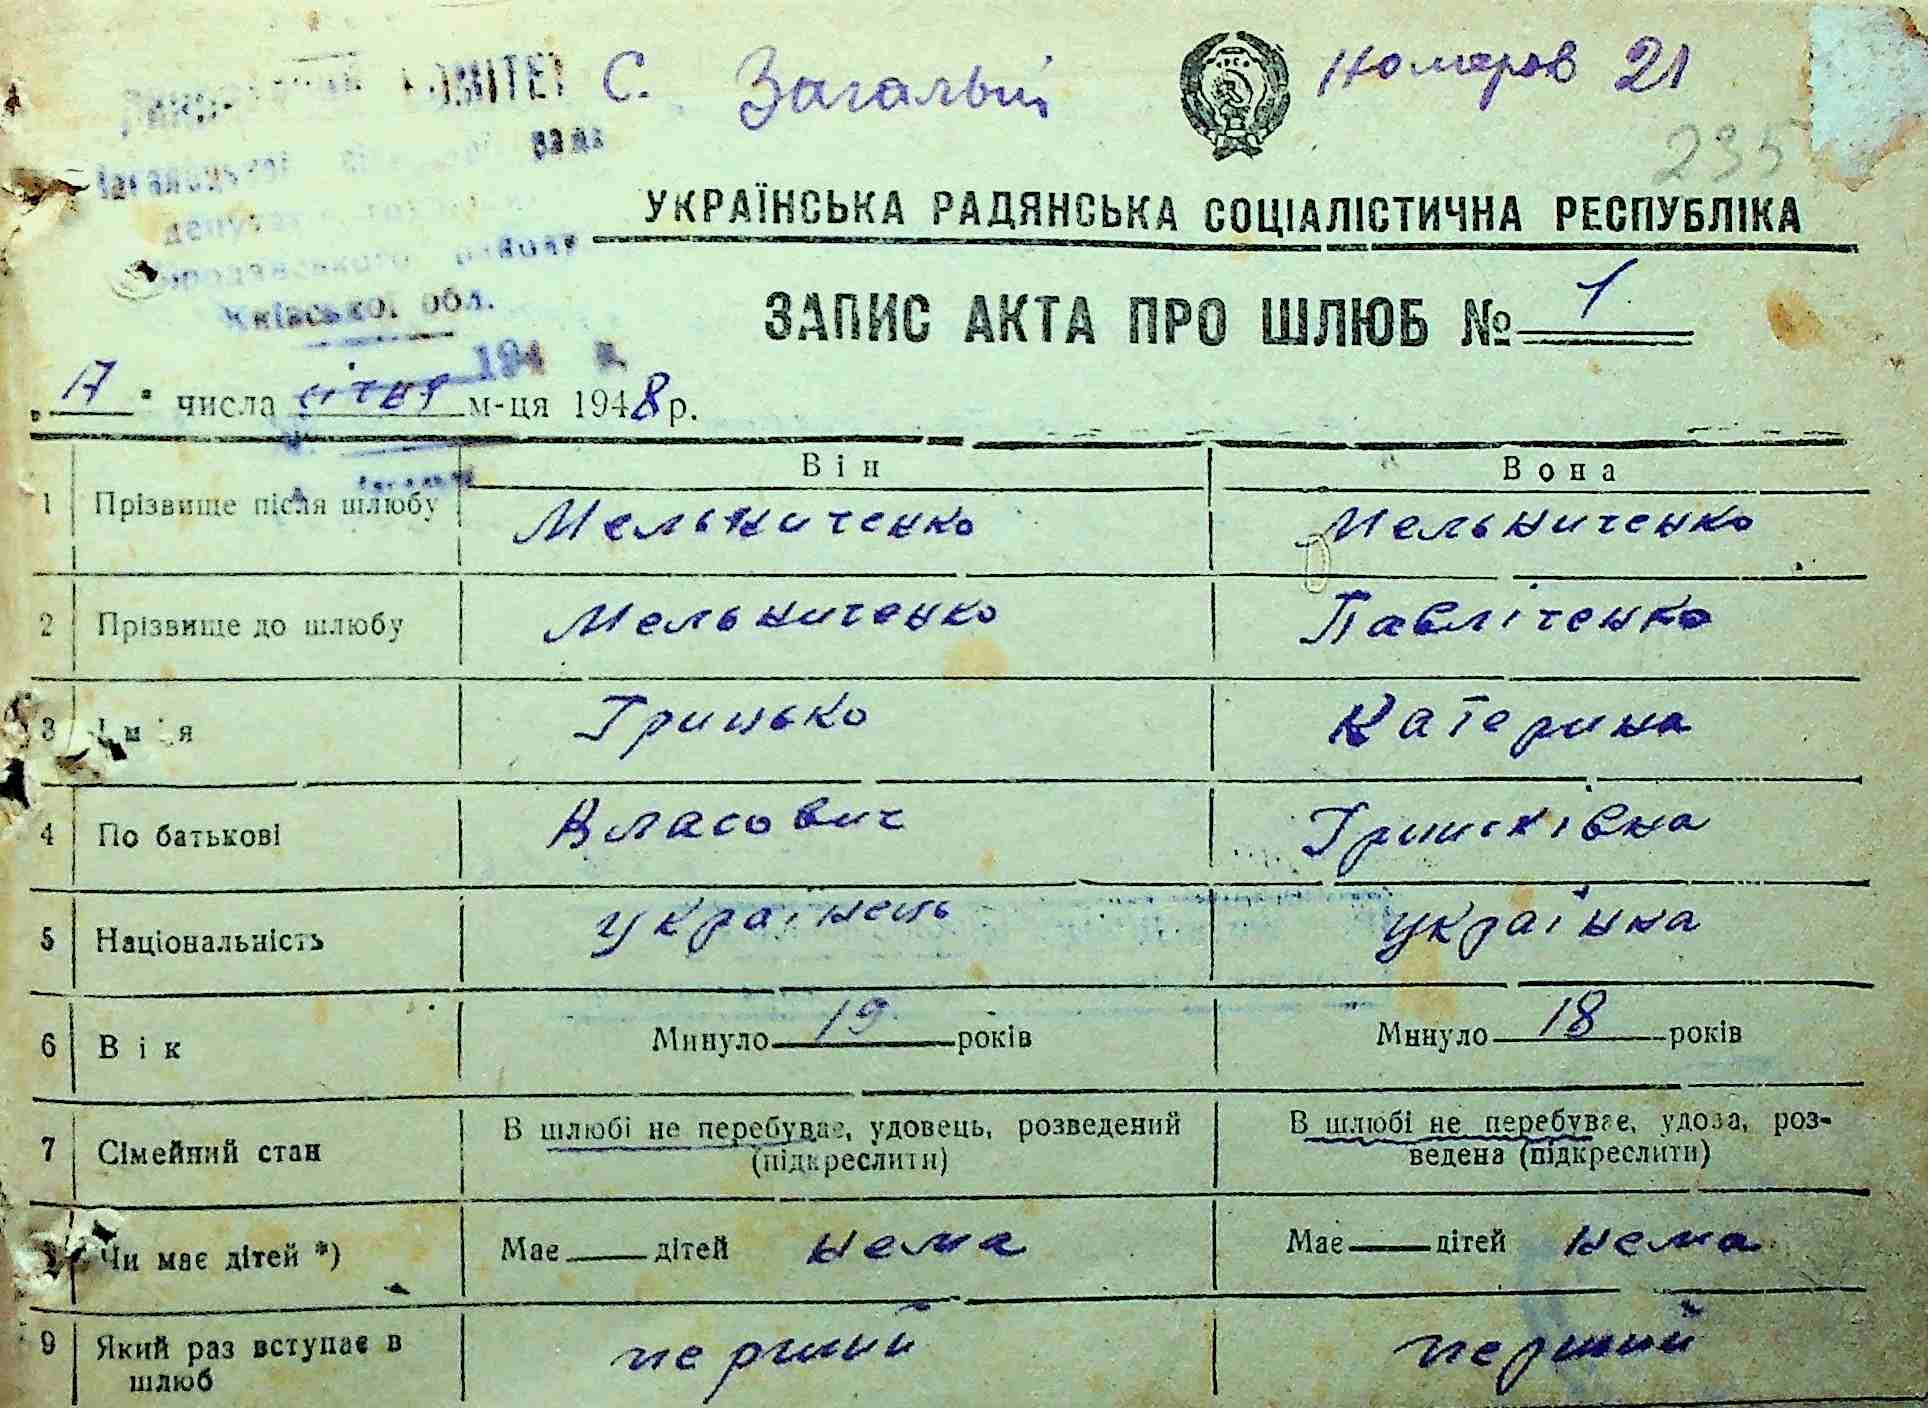 КОМІТЕТ С. Загальці номеров 21
рада 235
УКРАЇНСЬКА РАДЯНСЬКА СОЦІАЛІСТИЧНА РЕСПУБЛІКА
Київської обл.
ЗАПИС АКТА ПРО ШЛЮБ № 1
194 р.
„17" числа січня м-ця 1948 р.
Він Вона
1 Прізвище після шлюбу Мельниченко Мельниченко
2 Прізвище до шлюбу Мельниченко Павліченко
3 Ім'я Грицько Катерина
4 По батькові Власович Грицьківна
5 Національність українець українка
6 Вік Минуло 19 років Минуло 18 років
7 Сімейний стан В шлюбі не перебуває, удовець, розведений В шлюбі не перебуває, удова, роз-
(підкреслити) ведена (підкреслити)
Чи має дітей *) Має дітей нема Має дітей нема
9 Який раз вступає в перший перший
шлюб